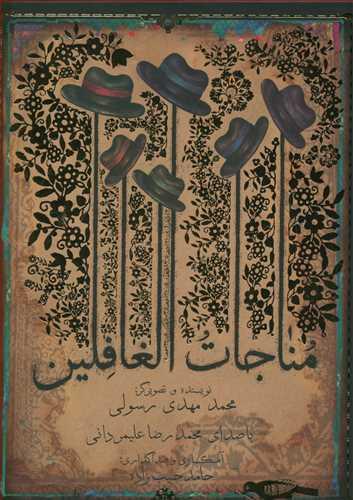 مُناجاتُ الغافِلین
نویسنده و تصویرگر:
محمد مهدی رسولی
باصدای محمد رضا علیمردانی
آهنگسازی و صداگذاری:
حامد حبیب زاده